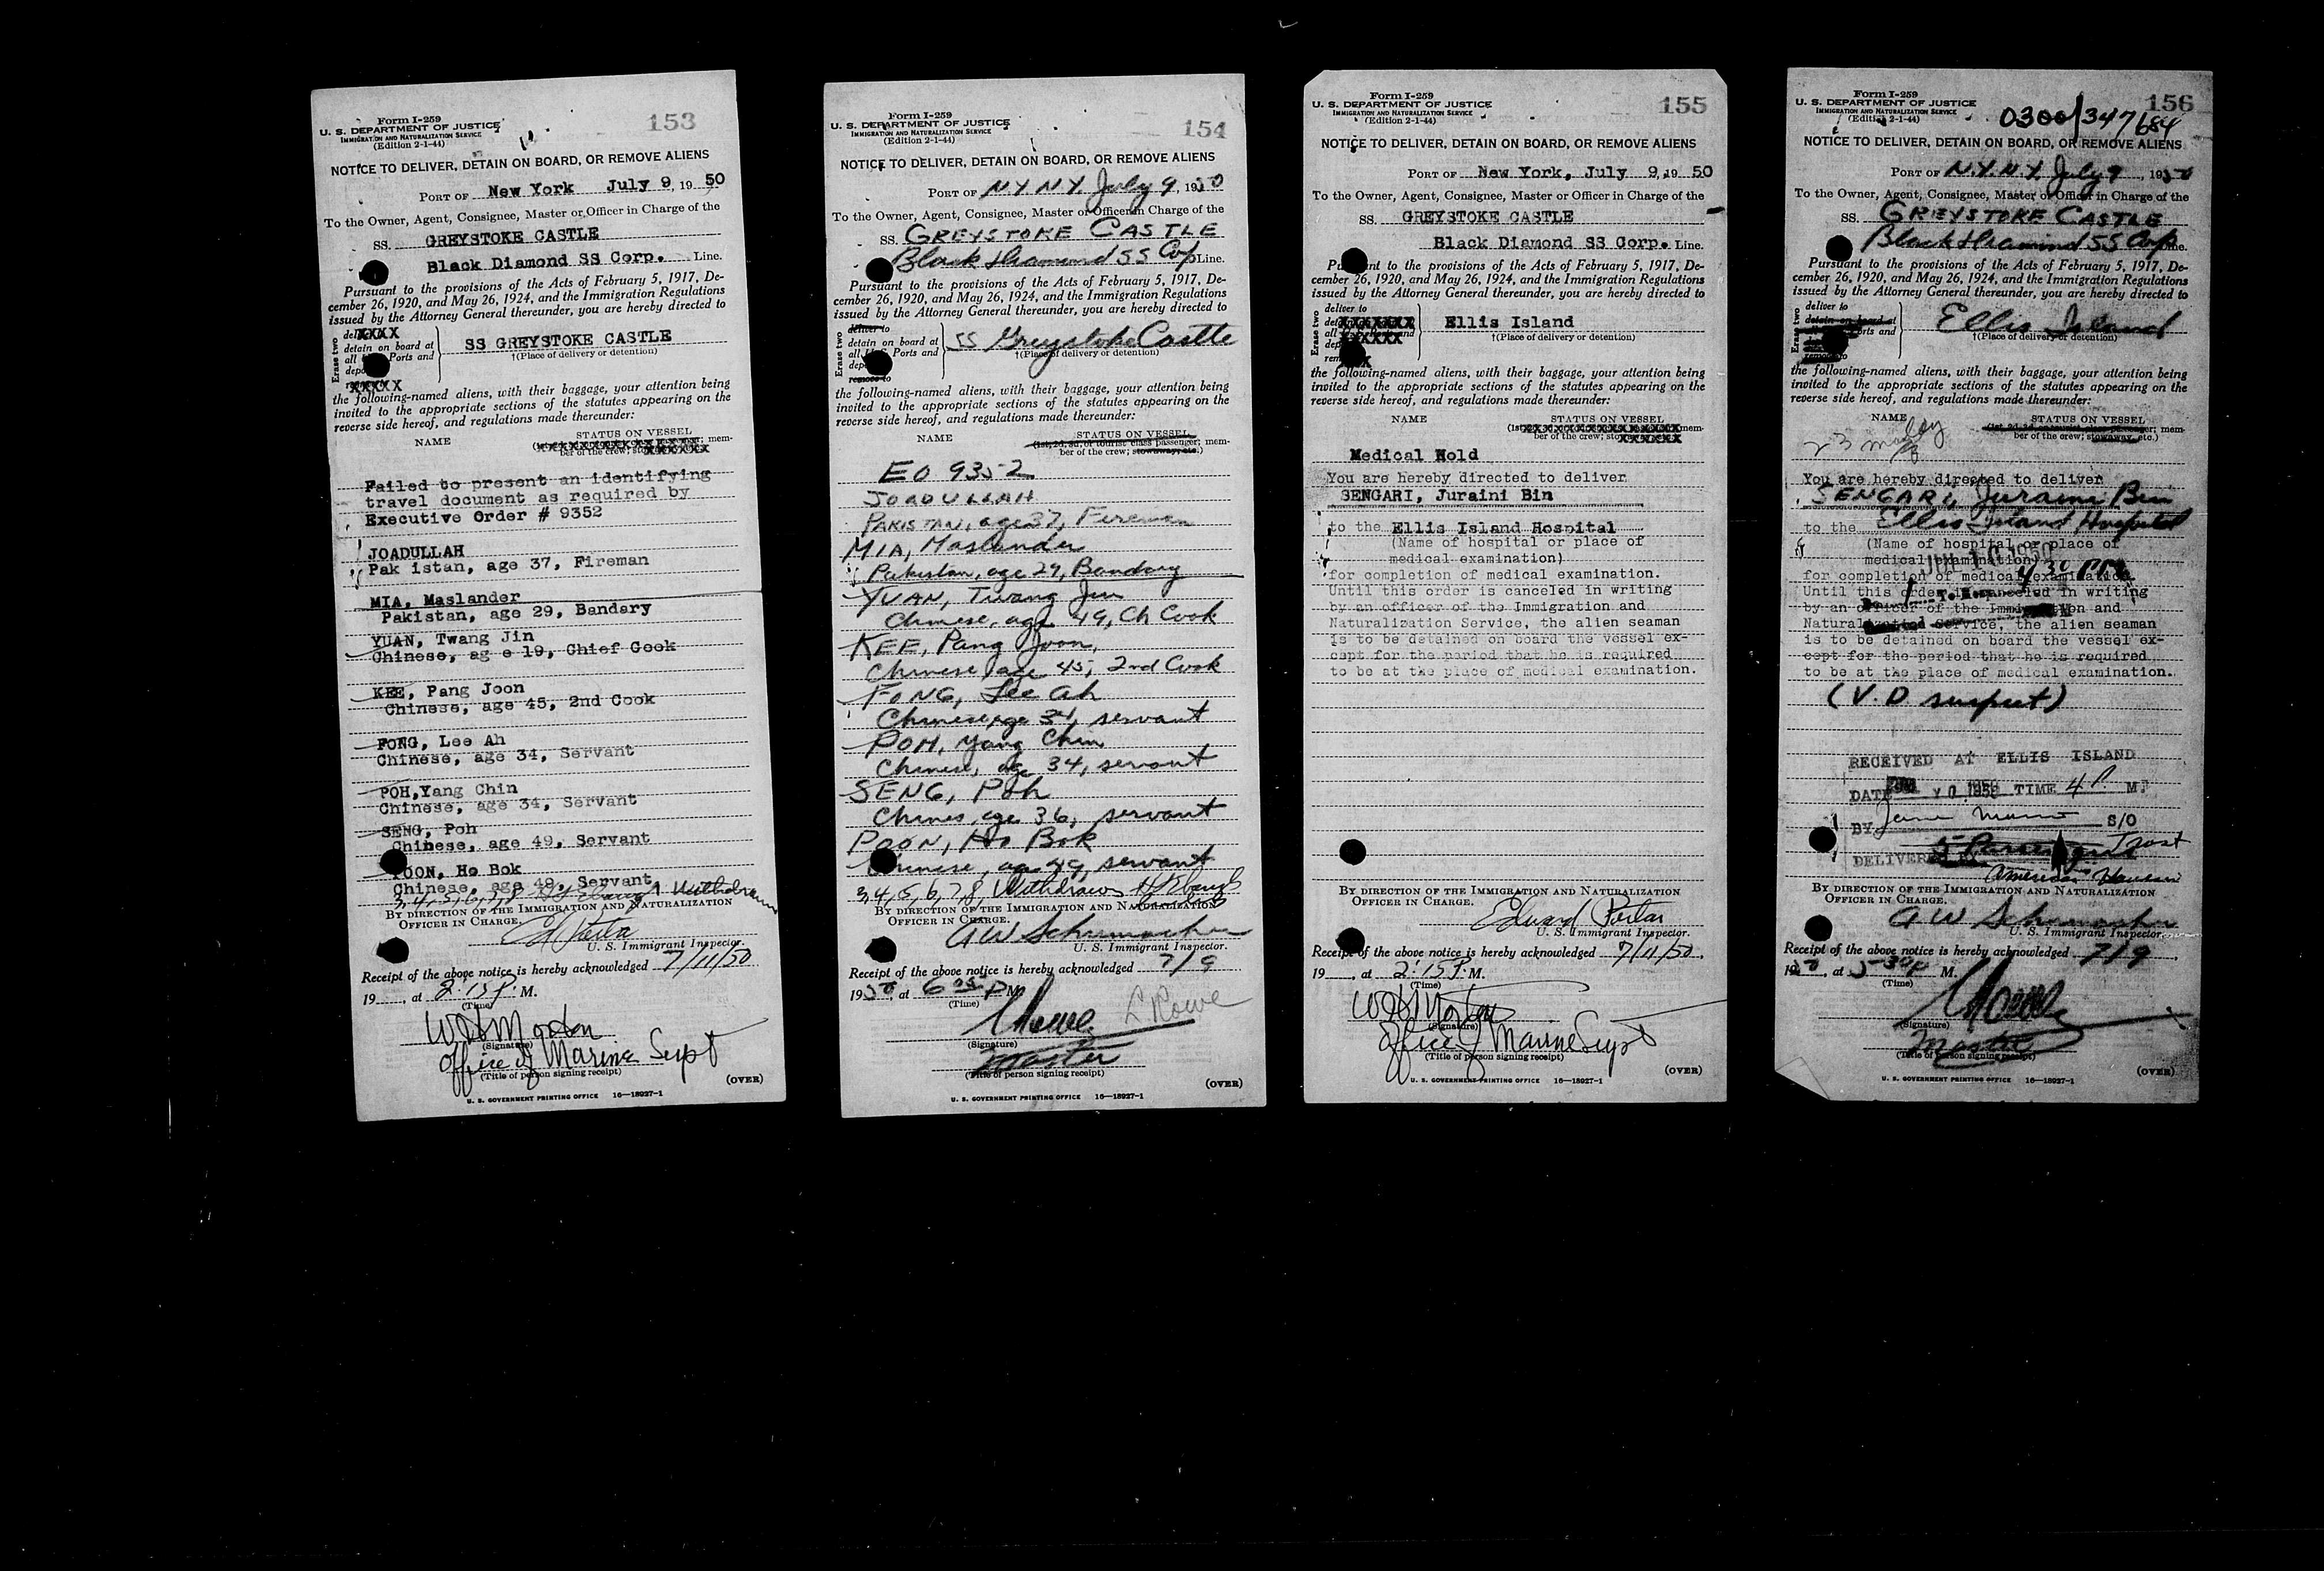 Form I-259
U. S. DEPARTMENT OF JUSTICE
IMMIGRATION AND NATURALIZATION SERVICE
(Edition 2-1-44)
153
NOTICE TO DELIVER, DETAIN ON BOARD, OR REMOVE ALIENS
PORT OF New York July 9, 19 50
To the Owner, Agent, Consignee, Master or Officer in Charge of the
SS. GREYSTOKE CASTLE
Black Diamond SS Corp. Line.
Pursuant to the provisions of the Acts of February 5, 1917, De-
cember 26, 1920, and May 26, 1924, and the Immigration Regulations
issued by the Attorney General thereunder, you are hereby directed to
Erase two
delXXXX
detain on board at
all Ports and
SS GREYSTOKE CASTLE
†(Place of delivery or detention)
XXXXX
the following-named aliens, with their baggage, your attention being
invited to the appropriate sections of the statutes appearing on the
reverse side hereof, and regulations made thereunder:
NAME STATUS ON VESSEL
mem-
ber of the crew;
Failed to present an identifying
travel document as required by
Executive Order # 9352
JOADULLAH
Pak istan, age 37, Fireman
MIA, Maslander
Pakistan, age 29, Bandary
YUAN, Twang Jin
Chinese, ag e 19, Chief Cook
KEE, Pang Joon
Chinese, age 45, 2nd Cook
FONG, Lee Ah
Chinese, age 34, Servant
POH,Yang Chin
Chinese, age 34, Servant
SENG, Poh
Chinese, age 49, Servant
POON, Ho Bok
Chinese, age 49, Servant
3,4,5,6,7,8 Withdrawn
BY DIRECTION OF THE IMMIGRATION AND NATURALIZATION
OFFICER IN CHARGE.
U. S. Immigrant Inspector.
Receipt of the above notice is hereby acknowledged 7/11/50
19 , at 2:15 P. M.
(Time)
W H Morton
(Signature)
Office of Marine Supt
(Title of person signing receipt)
(OVER)
U. S. GOVERNMENT PRINTING OFFICE 16—18927-1
Form I-259
U. S. DEPARTMENT OF JUSTICE
IMMIGRATION AND NATURALIZATION SERVICE
(Edition 2-1-44)
154
NOTICE TO DELIVER, DETAIN ON BOARD, OR REMOVE ALIENS
PORT OF N.Y. N.Y. July 9, 1950
To the Owner, Agent, Consignee, Master or Officer in Charge of the
SS. GREYSTOKE CASTLE
Black Diamond SS Corp Line.
Pursuant to the provisions of the Acts of February 5, 1917, De-
cember 26, 1920, and May 26, 1924, and the Immigration Regulations
issued by the Attorney General thereunder, you are hereby directed to
Erase two
deliver to
detain on board at
all U.S. Ports and
SS Greystoke Castle
†(Place of delivery or detention)
remove to
the following-named aliens, with their baggage, your attention being
invited to the appropriate sections of the statutes appearing on the
reverse side hereof, and regulations made thereunder:
NAME STATUS ON VESSEL
(1st, 2d, 3d, or tourist class passenger; mem-
ber of the crew; stowaway, etc.)
EO 9352
JOADULLAH
PAKISTAN, age 37, Fireman
MIA, Maslander
Pakistan, age 29, Bandary
YUAN, Twang Jin
Chinese, age 49, Ch Cook
KEE, Pang Joon,
Chinese age 45, 2nd Cook
FONG, Lee Ah
Chinese, age 34, servant
POH, Yang Chin
Chinese, age 34, servant
SENG, Poh
Chines, age 36, servant
POON, Ho Bok
Chinese, age 49, servant
3,4,5,6,7,8, Withdrawn
BY DIRECTION OF THE IMMIGRATION AND NATURALIZATION
OFFICER IN CHARGE.
G W Schumacher
U. S. Immigrant Inspector.
Receipt of the above notice is hereby acknowledged 7/9
1950, at 6 05 P M.
(Time)
LRowe L Rowe
(Signature)
Master
(Title of person signing receipt)
(OVER)
U. S. GOVERNMENT PRINTING OFFICE 16—18927-1
Form I-259
U. S. DEPARTMENT OF JUSTICE
IMMIGRATION AND NATURALIZATION SERVICE
(Edition 2-1-44)
155
NOTICE TO DELIVER, DETAIN ON BOARD, OR REMOVE ALIENS
PORT OF New York, July 9, 19 50
To the Owner, Agent, Consignee, Master or Officer in Charge of the
SS. GREYSTOKE CASTLE
Black Diamond SS Corp. Line.
Pursuant to the provisions of the Acts of February 5, 1917, De-
cember 26, 1920, and May 26, 1924, and the Immigration Regulations
issued by the Attorney General thereunder, you are hereby directed to
Erase two
deliver to
Ellis Island
†(Place of delivery or detention)
the following-named aliens, with their baggage, your attention being
invited to the appropriate sections of the statutes appearing on the
reverse side hereof, and regulations made thereunder:
NAME STATUS ON VESSEL
mem-
ber of the crew;
Medical Hold
You are hereby directed to deliver
SENGARI, Juraini Bin
to the Ellis Island Hospital
(Name of hospital or place of
medical examination)
for completion of medical examination.
Until this order is canceled in writing
by an officer of the Immigration and
Naturalization Service, the alien seaman
is to be detained on board the vessel ex-
cept for the period that he is required
to be at the place of medical examination.
BY DIRECTION OF THE IMMIGRATION AND NATURALIZATION
OFFICER IN CHARGE.
Edward
U. S. Immigrant Inspector.
Receipt of the above notice is hereby acknowledged 7/11/50,
19 , at 2:15 P. M.
(Time)
W H Morton
(Signature)
Office of Marine Supt
(Title of person signing receipt)
(OVER)
U. S. GOVERNMENT PRINTING OFFICE 16—18927-1
Form I-259
U. S. DEPARTMENT OF JUSTICE
IMMIGRATION AND NATURALIZATION SERVICE
(Edition 2-1-44)
156
0300/347684
NOTICE TO DELIVER, DETAIN ON BOARD, OR REMOVE ALIENS
PORT OF N.Y. N.Y. July 9, 1950
To the Owner, Agent, Consignee, Master or Officer in Charge of the
SS. GREYSTOKE CASTLE
Black Diamond SS Corp Line.
Pursuant to the provisions of the Acts of February 5, 1917, De-
cember 26, 1920, and May 26, 1924, and the Immigration Regulations
issued by the Attorney General thereunder, you are hereby directed to
Erase two
deliver to
detain on board at
Ports and
Ellis Island
†(Place of delivery or detention)
the following-named aliens, with their baggage, your attention being
invited to the appropriate sections of the statutes appearing on the
reverse side hereof, and regulations made thereunder:
NAME STATUS ON VESSEL
(1st, 2d, 3d, or tourist class passenger; mem-
ber of the crew; stowaway, etc.)
23
You are hereby directed to deliver
SENGARI, Juraini Bin
to the Ellis Island Hospital
(Name of hospital or place of
medical examination)
JUL 10 1950
4 30 PM
for completion of medical examination.
Until this order is canceled in writing
by an officer of the Immigration and
Naturalization Service, the alien seaman
is to be detained on board the vessel ex-
cept for the period that he is required
to be at the place of medical examination.
(V.D suspect)
RECEIVED AT ELLIS ISLAND
DATE 10 1950 TIME 4 P. M.
BY S/O
DELIVERED BY
BY DIRECTION OF THE IMMIGRATION AND NATURALIZATION
OFFICER IN CHARGE.
G W Schumacher
U. S. Immigrant Inspector.
Receipt of the above notice is hereby acknowledged 7/9,
1950, at 5-30 P M.
(Time)
LRowe
(Signature)
Master
(Title of person signing receipt)
(OVER)
U. S. GOVERNMENT PRINTING OFFICE 16—18927-1